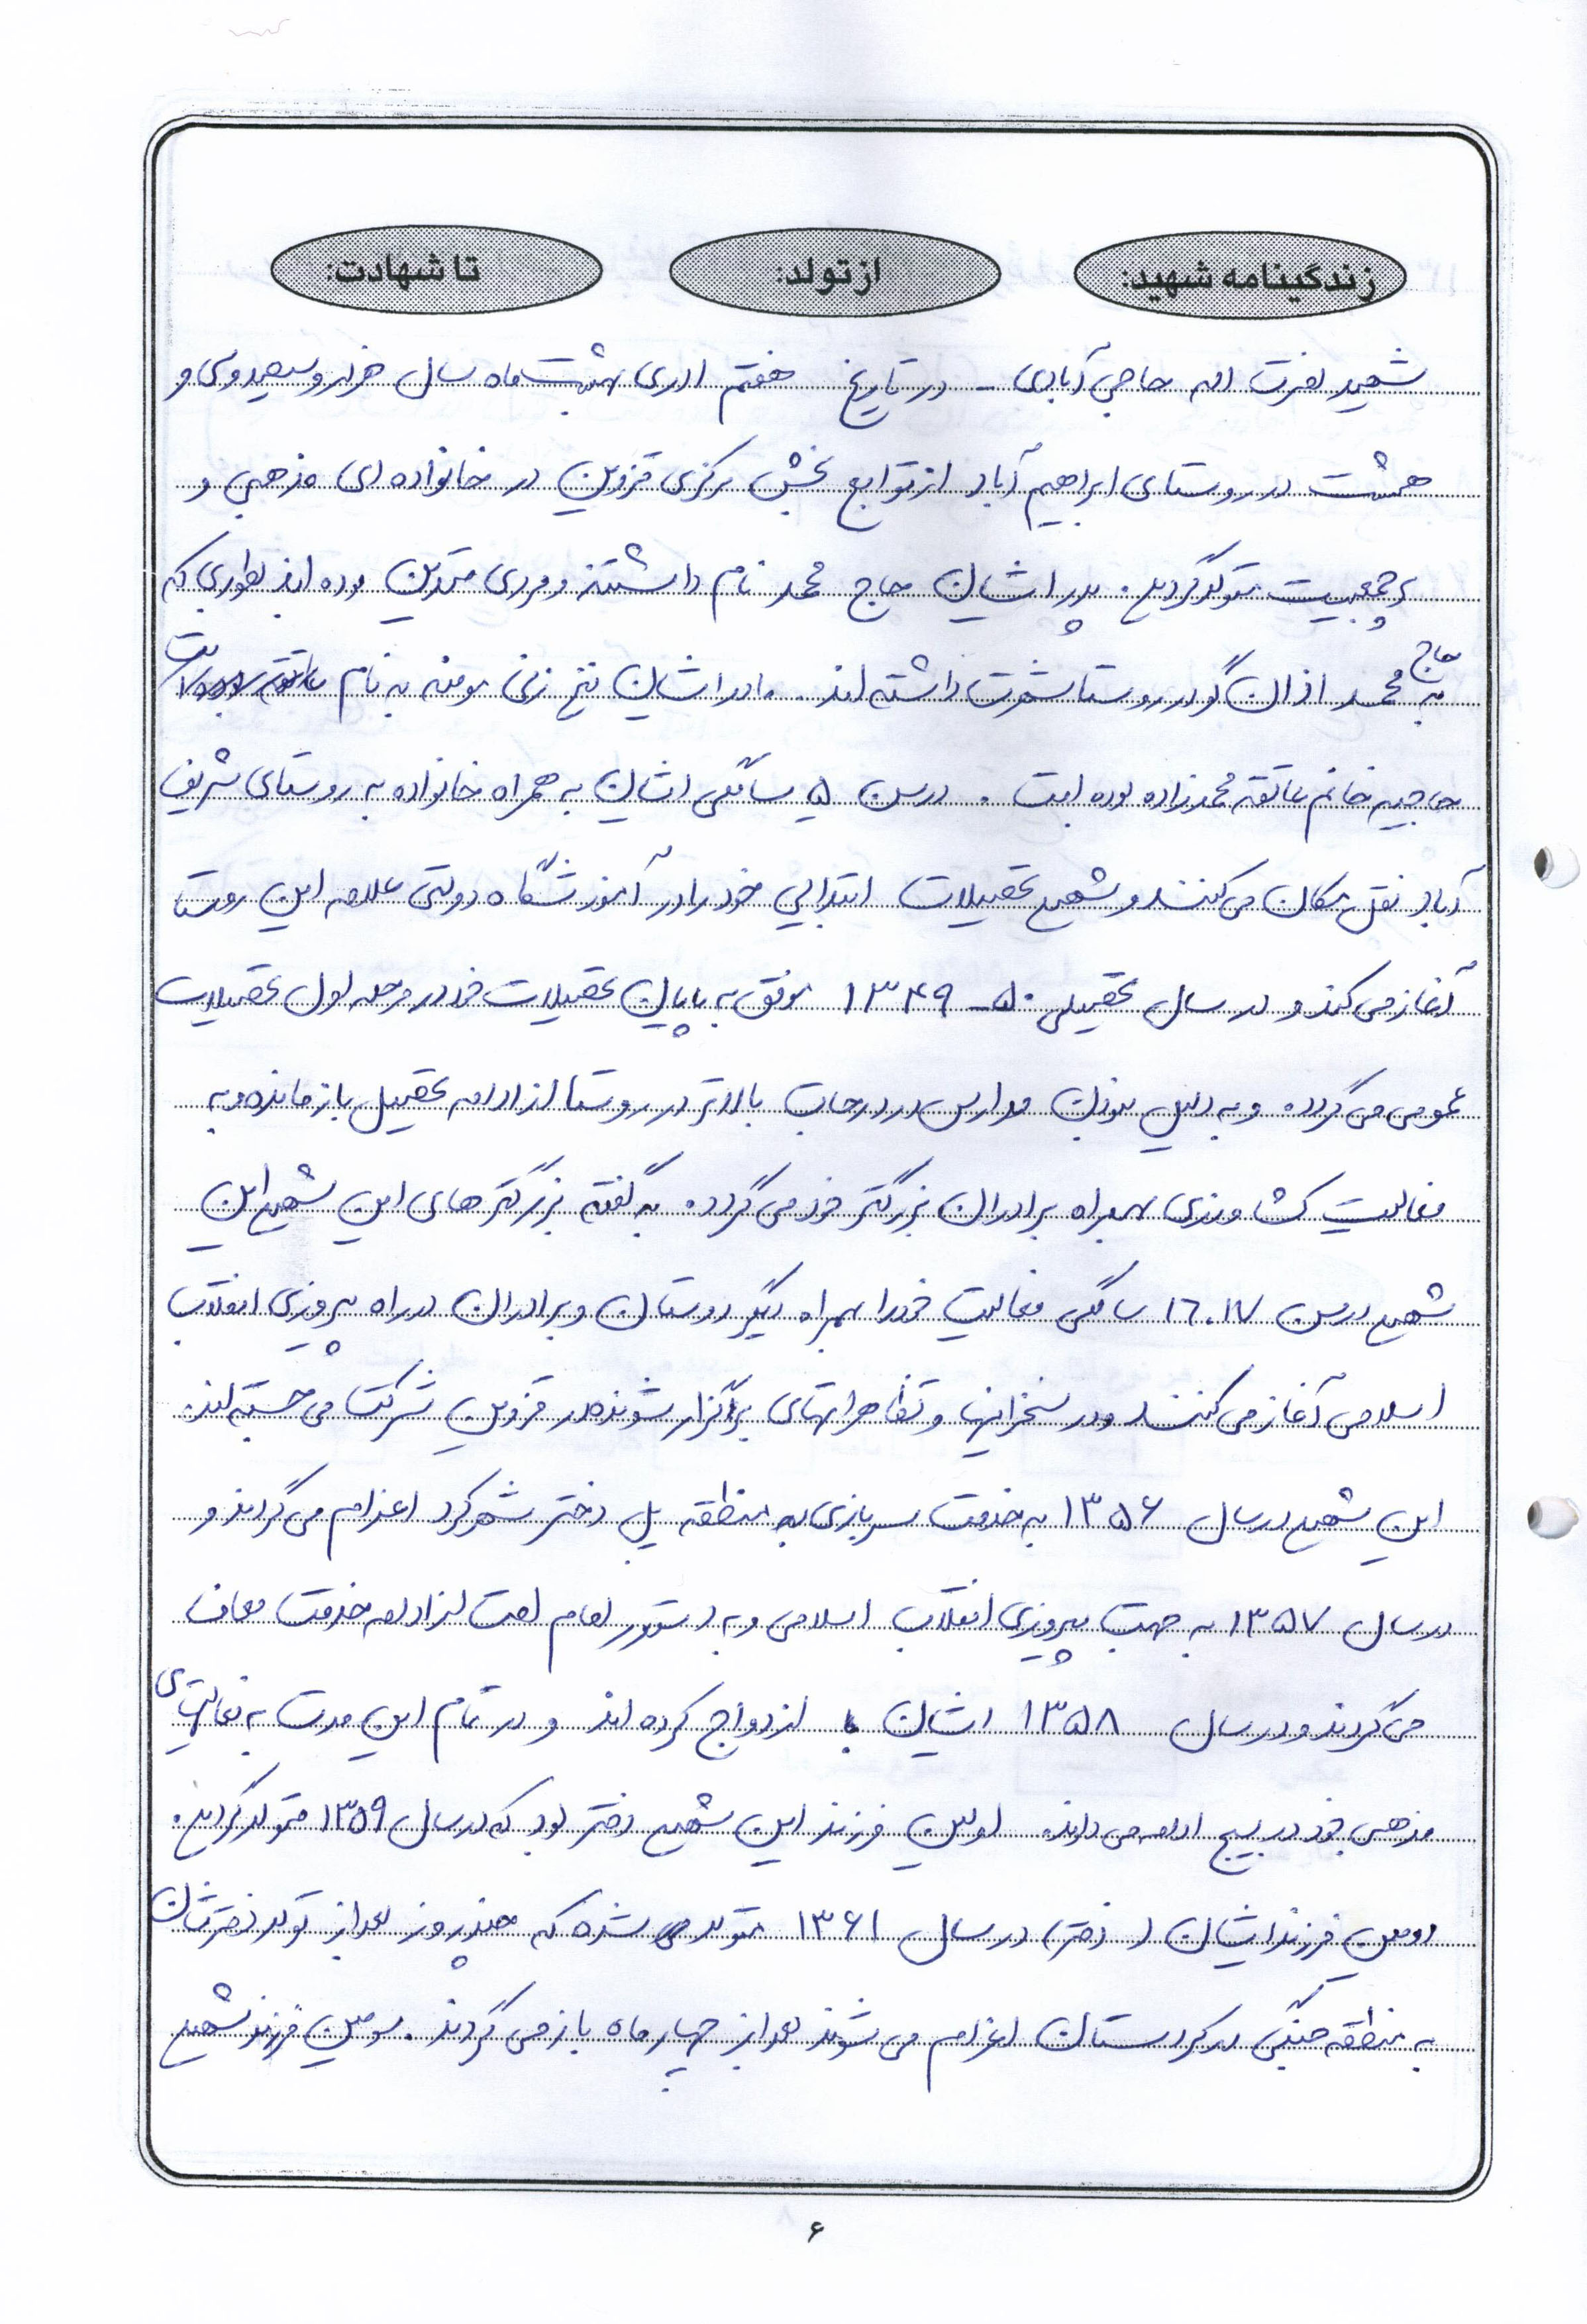 زندگینامه شهید: از تولد: تا شهادت:
شهید نصرت اله حاجی آبادی - در تاریخ هفتم اردی بهشت ماه سال هزار و سیصد و سی و
هشت در روستای ابراهیم آباد از توابع بخش مرکزی قزوین در خانواده ای مذهبی و
پرجمعیت متولد گردید. پدر ایشان حاج محمد نام داشتند و مردی متدین بوده اند بطوری که
به حاج محمد اذان گو در روستا شهرت داشته اند. مادر ایشان نیز زنی مومنه به نام
حاجیه خانم عاتقه محمدزاده بوده است. در سن ۵ سالگی ایشان به همراه خانواده به روستای شریف
آباد نقل مکان می کنند و شهید تحصیلات ابتدایی خود را در آموزشگاه دولتی علامه این روستا
آغاز می کند و در سال تحصیلی ۵۰-۱۳۴۹ موفق به پایان تحصیلات خود در مرحله اول تحصیلات
عمومی می گردد. و به دلیل نبودن مدارس در درجات بالاتر در روستا از ادامه تحصیل باز مانده و به
فعالیت کشاورزی بهمراه برادران بزرگتر خود می گردد. به گفته بزرگترهای این شهید این
شهید در سن ۱۶،۱۷ سالگی فعالیت خود را بهمراه دیگر دوستان و برادران در راه پیروزی انقلاب
اسلامی آغاز می کنند و در سخنرانیها و تظاهراتهای برگزار شونده در قزوین شرکت می جسته اند.
این شهید در سال ۱۳۵۶ به خدمت سربازی به منطقه پل دختر شهرکرد اعزام می گردند و
در سال ۱۳۵۷ به جهت پیروزی انقلاب اسلامی و به دستور امام امت از ادامه خدمت معاف
می گردند و در سال ۱۳۵۸ ایشان با ازدواج کرده اند و در تمام این مدت به فعالیتهای
مذهبی خود در بسیج ادامه می دادند. اولین فرزند این شهید دختر بود که در سال ۱۳۵۹ متولد گردید.
دومین فرزند ایشان (دختر) در سال ۱۳۶۱ متولد شده که چند روز بعد از تولد دخترشان
به منطقه جنگی در کردستان اعزام می شوند بعد از چهار ماه باز می گردند. سومین فرزند شهید
۶